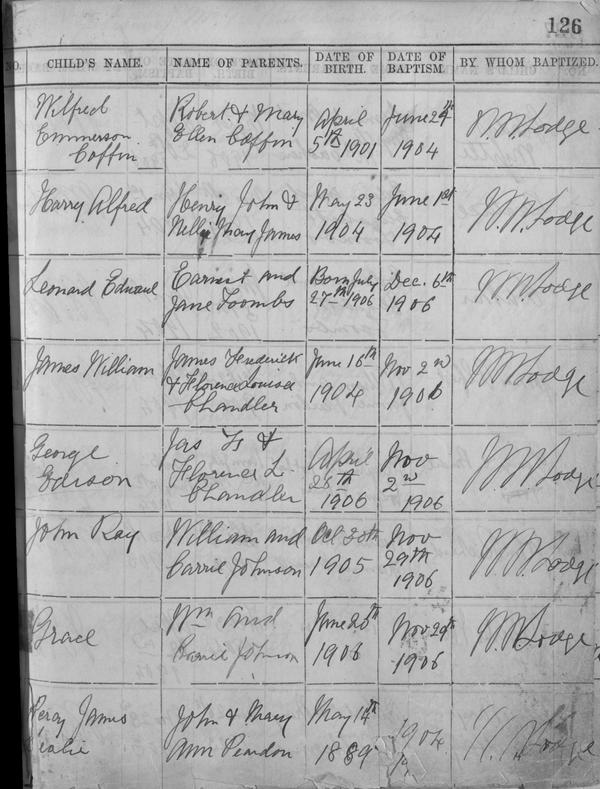 126
NO. CHILD'S NAME. NAME OF PARENTS. DATE OF BIRTH. DATE OF BAPTISM BY WHOM BAPTIZED.
Wilfred Robert & Mary April June 29th W.W. Lodge
Emmerson Ellen Coffin 5th 1901 1904
Coffin
Harry Alfred Henry John & May 23 June 1st W.W. Lodge
Nelli May James 1904 1904
Leonard Edward Earnest and Born July Dec. 6th W.W. Lodge
Jane Toombs 27th 1906 1906
James William James Frederick June 16th Nov 2nd W.W. Lodge
& Florence Louisa 1904 1906
Chandler
George Jas Fr & April Nov W.W. Lodge
Edison Florence L. 28th 2nd
Chandler 1906 1906
John Ray William and Oct 30th Nov W.W. Lodge
Carrie Johnson 1905 29th
1906
Grace Wm and June 26th Nov 29th W.W. Lodge
Johnson 1906 1906
Percy James John & Mary May 14th 1904 Lodge
Leslie Ann 1889